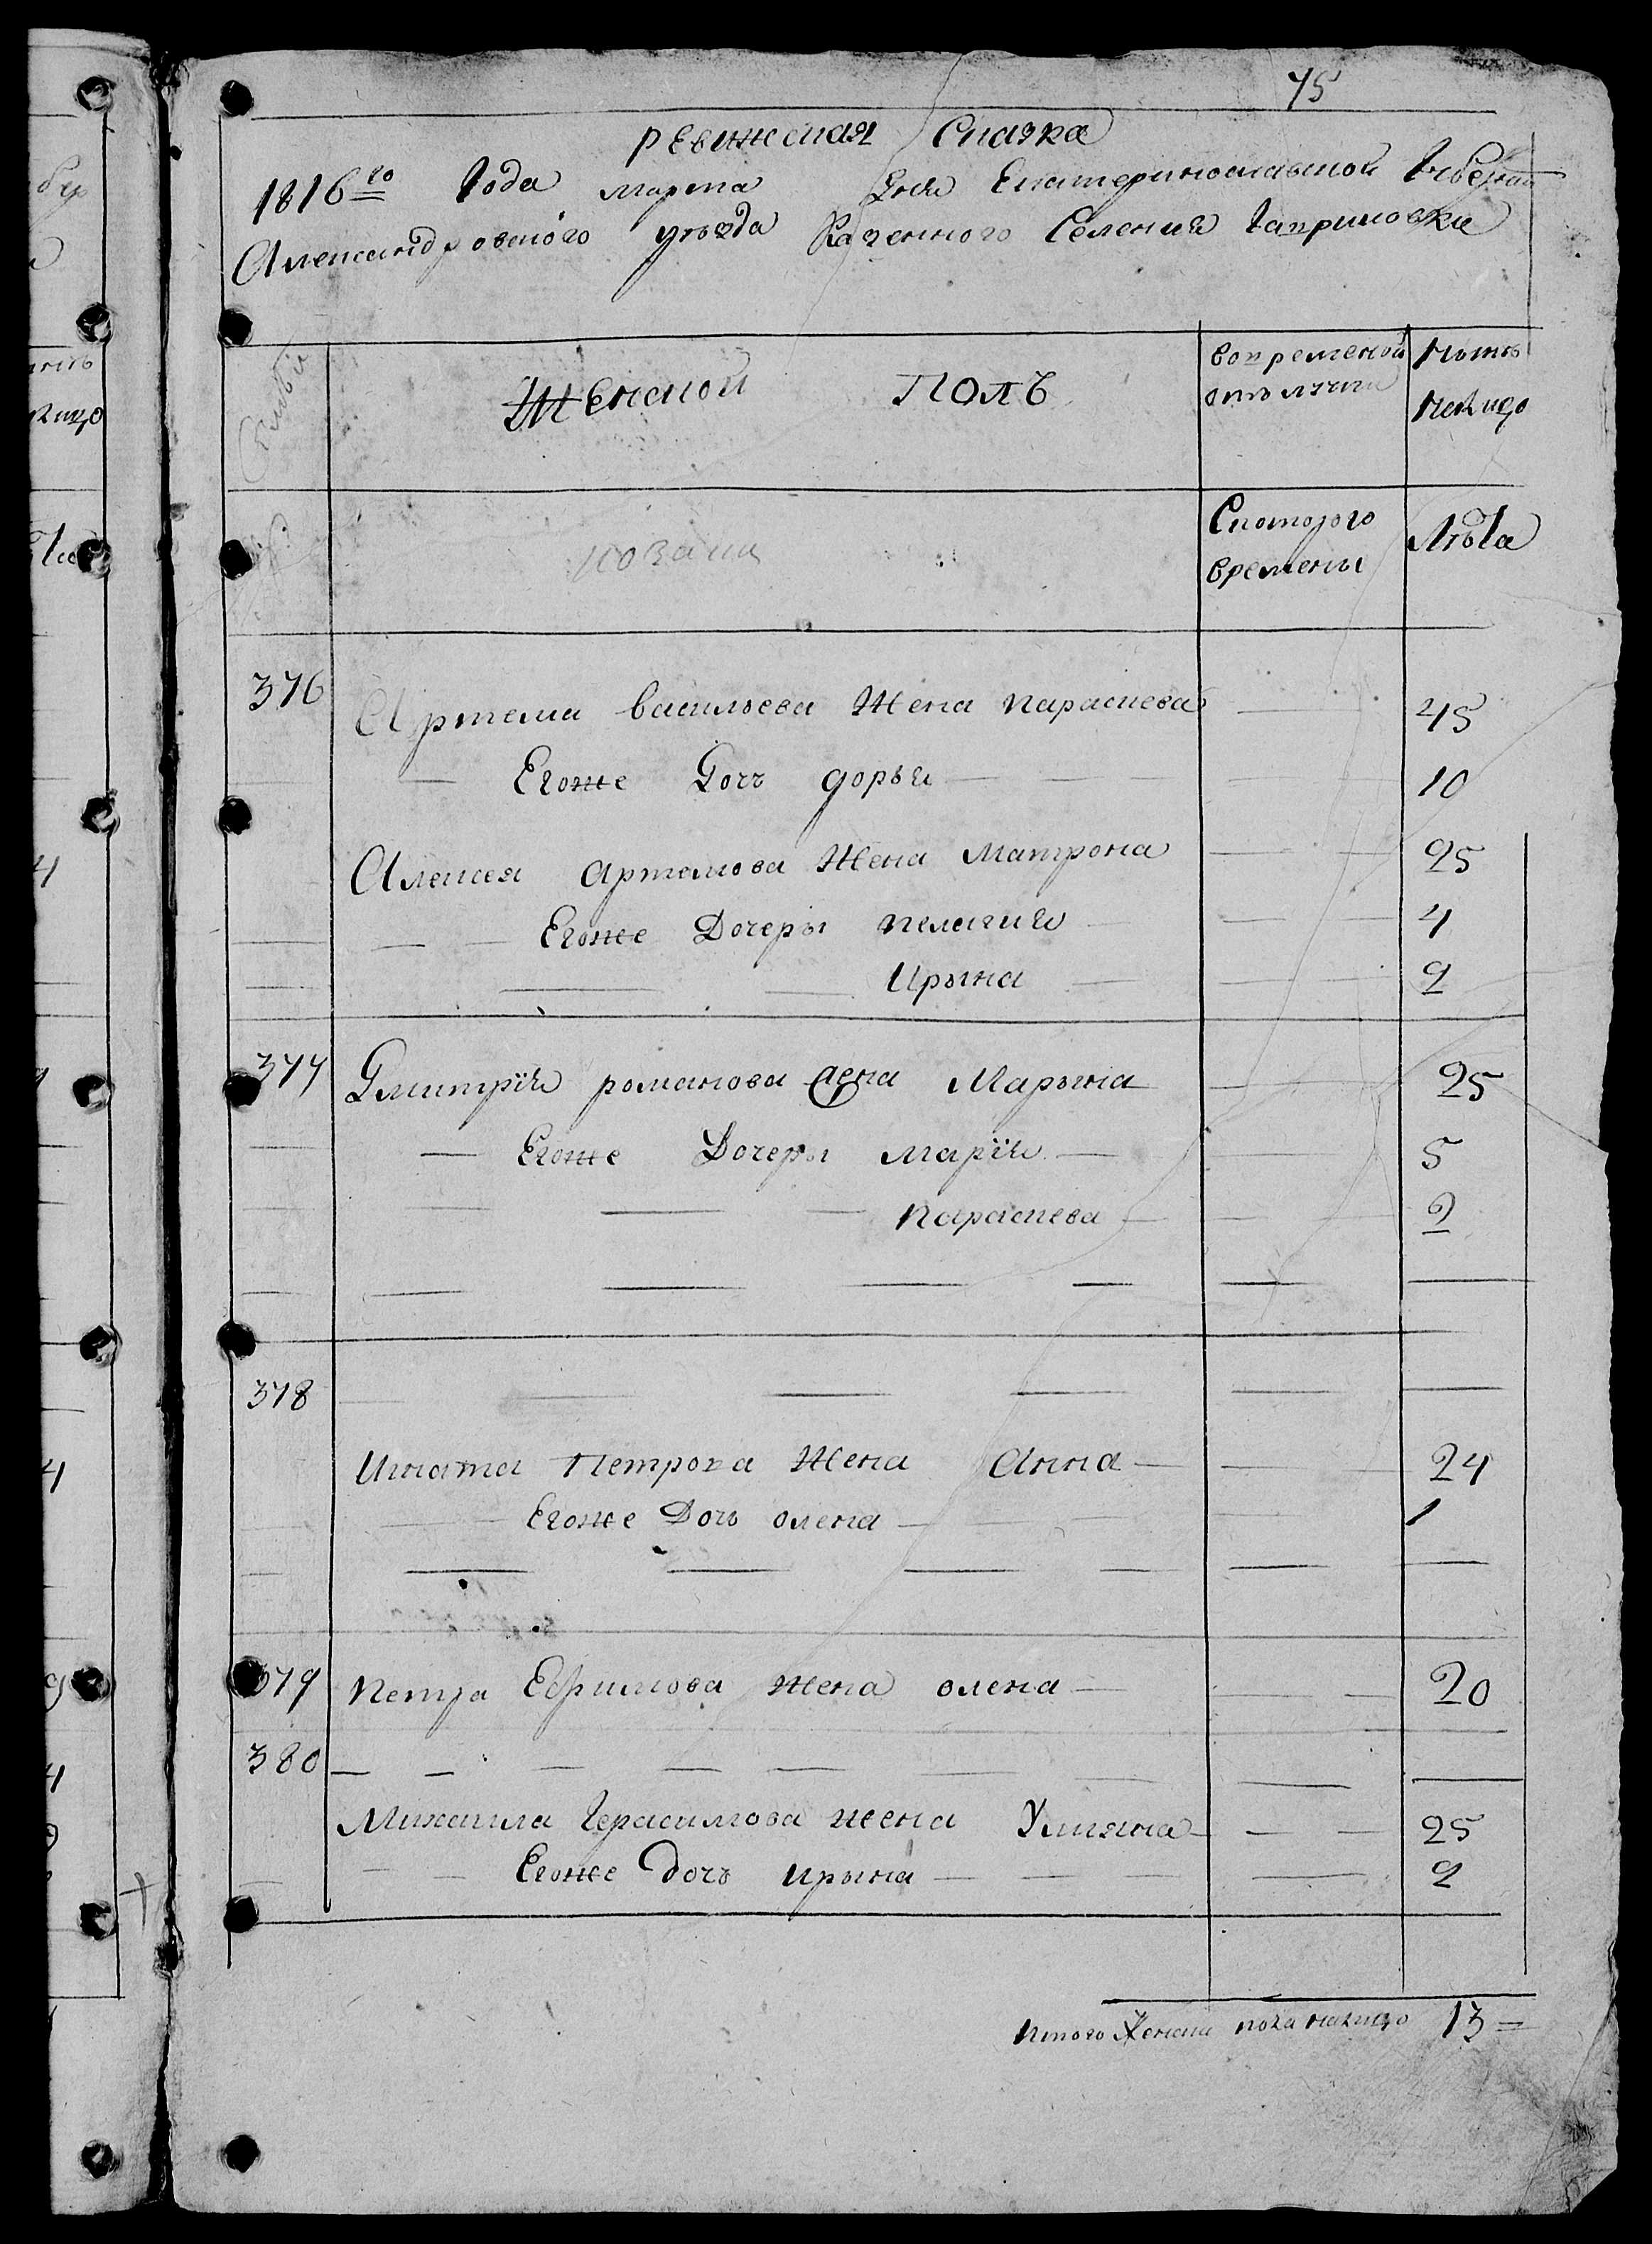 75
ревижская Сказка
1816го года марта дня Екатеринославской губернии
Александровского уѣзда Казенного Селения гаприловки
Семьи
Женской Полъ
вовременой отълучки
Нынѣ
налицо
козаки
Скоторого
времены
Лѣта
376
Артема васильева Жена параскева — 45
— Егоже Дочъ дорья — — 10
Алексея Артемова Жена Матрона — 25
— — Егоже Дочеры пелагия — 4
— — Ирына — 2
377 Дмитрія романова жена Марына — 25
— Егоже Дочеры марія — 5
— — — параскева — 2
378
Игната Петрова Жена Анна — 24
— Егоже Дочъ олена — 1
379 петра Ефимова жена олена — 20
380
Михаила герасимова жена Улияна — 25
— Егоже дочъ ирына — 2
Итого Женска пола налицо 13 =